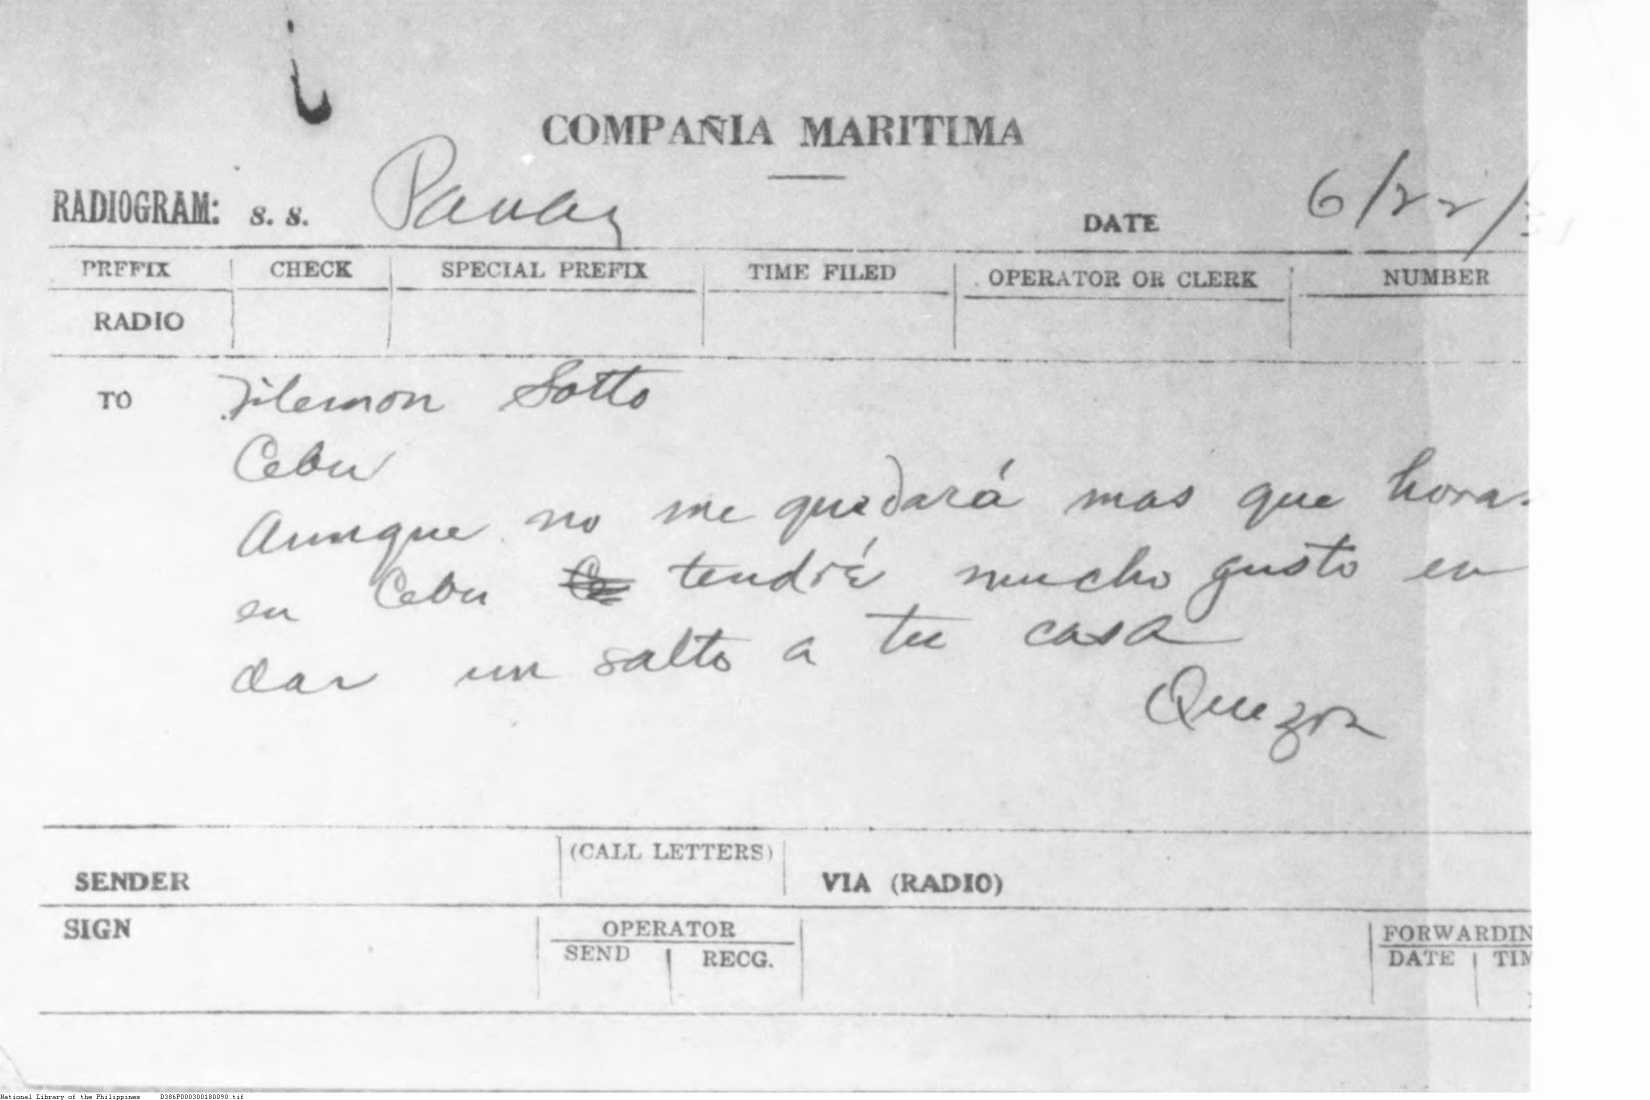 COMPAÑIA MARITIMA
RADIOGRAM: S. S. Panay
DATE 6/22/
PREFIX CHECK SPECIAL PREFIX TIME FILED OPERATOR OR CLERK NUMBER
RADIO
TO Filemon Sotto
Cebu
Aunque no me quedará mas que hora
en Cebu tendré mucho gusto en
dar un salto a tu casa
Quezon
(CALL LETTERS)
SENDER VIA (RADIO)
SIGN OPERATOR FORWARDIN
SEND RECG. DATE TIM
National Library of the Philippines D386P000300180090.tif